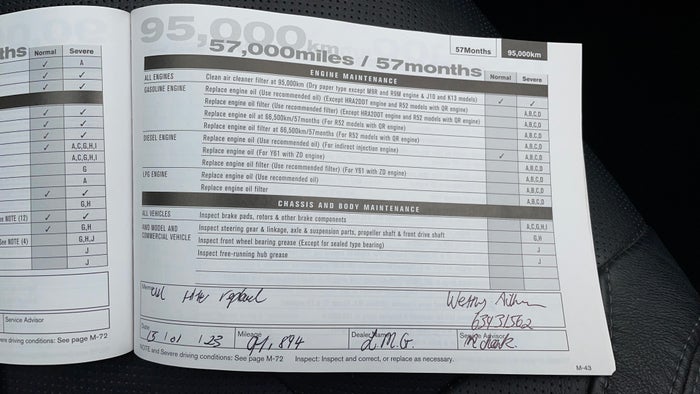 ths
Normal Severe
✓ A
✓ ✓
✓ ✓
✓ ✓
✓ ✓
✓ A,C,G,H,I
A,C,G,H,I
G
A
✓ ✓
G,H
NOTE (12) ✓ ✓
✓ G,H
See NOTE (4) G,H,J
J
J
Service Advisor
driving conditions: See page M-72
95,000km
57,000miles / 57months
57Months 95,000km
ENGINE MAINTENANCE Normal Severe
ALL ENGINES Clean air cleaner filter at 95,000km (Dry paper type except M9R and R9M engine & J10 and K13 models) ✓ ✓
GASOLINE ENGINE Replace engine oil (Use recommended oil) (Except HRA2DDT engine and R52 models with QR engine) A,B,C,D
Replace engine oil filter (Use recommended filter) (Except HRA2DDT engine and R52 models with QR engine) A,B,C,D
Replace engine oil at 66,500km/57months (For R52 models with QR engine) A,B,C,D
Replace engine oil filter at 66,500km/57months (For R52 models with QR engine) A,B,C,D
DIESEL ENGINE Replace engine oil (Use recommended oil) (For indirect injection engine) A,B,C,D
Replace engine oil (For Y61 with ZD engine) ✓ A,B,C,D
Replace engine oil filter (Use recommended filter) (For Y61 with ZD engine) A,B,C,D
LPG ENGINE Replace engine oil (Use recommended oil) A,B,C,D
Replace engine oil filter A,B,C,D
CHASSIS AND BODY MAINTENANCE
ALL VEHICLES Inspect brake pads, rotors & other brake components A,C,G,H,I
4WD MODEL AND COMMERCIAL VEHICLE Inspect steering gear & linkage, axle & suspension parts, propeller shaft & front drive shaft G,H
Inspect front wheel bearing grease (Except for sealed type bearing) J
Inspect free-running hub grease J
Memo
63431562
Date 13 01 23 Mileage 91,894 Dealer Name L.M.G. Service Advisor
NOTE and Severe driving conditions: See page M-72 Inspect: Inspect and correct, or replace as necessary.
M-43